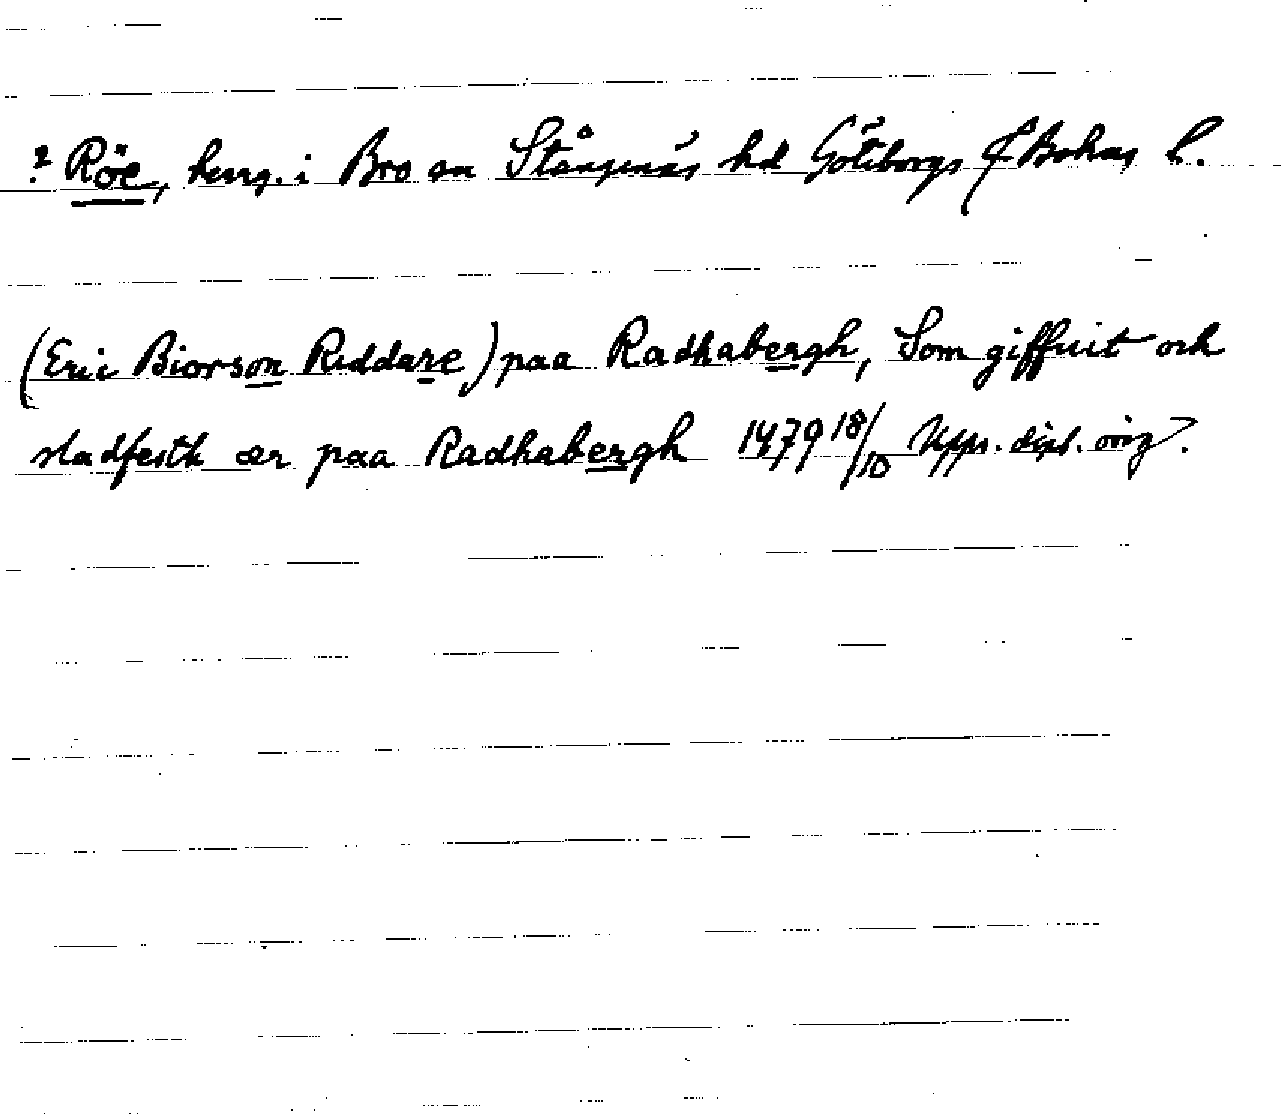 ? Röe, herrg. i Bro sn Stångenäs hd Göteborgs & Bohus l.
(Eric Biorson Riddare) paa Radhabergh, Som giffuit och
stadfesth ær paa Radhabergh 1479 18/10 Upps. dipl. orig.